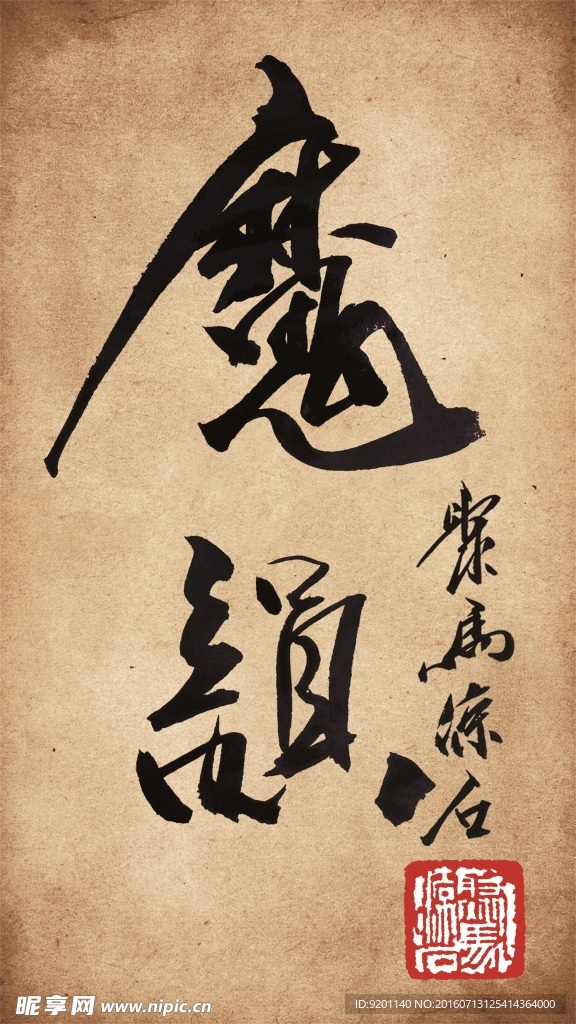 魔韻
聚馬凉石
昵享网 www.nipic.cn
ID:9201140 NO:20160713125414364000